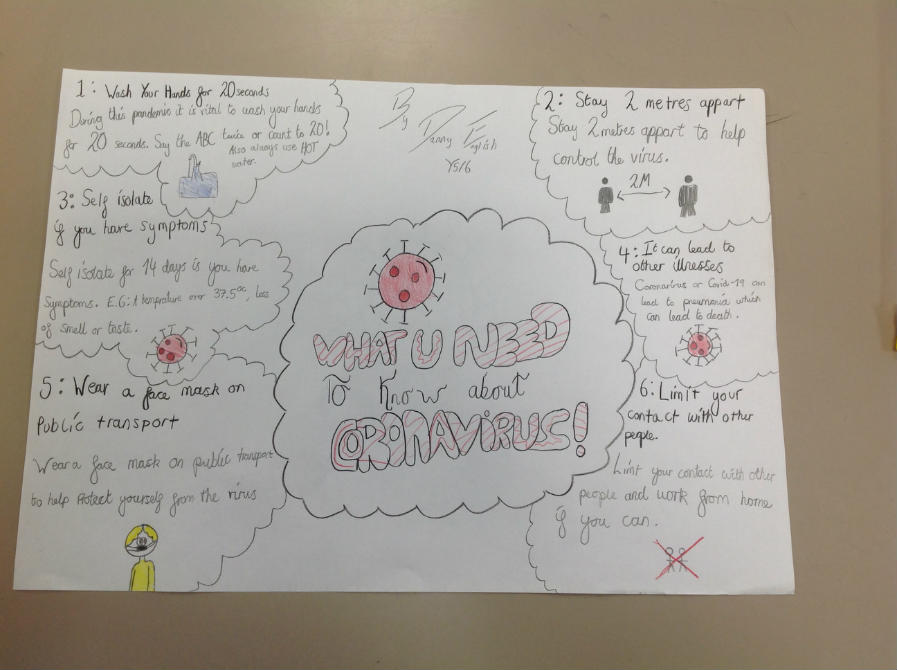 1: Wash Your Hands for 20 seconds
During this pandemic it is vital to wash your hands
for 20 seconds. Say the ABC twice or count to 20!
Also always use HOT
water.
By
Danny English
Y5/6
2: Stay 2 metres appart
Stay 2 metres appart to help
control the virus.
2M
3: Self isolate
if you have symptoms
Self isolate for 14 days is you have
Symptoms. E.G: A temprature over 37.5°C, Loss
of smell or taste.
4: It can lead to
other illnesses
Coronavirus or Covid-19 can
lead to pneumonia which
can lead to death.
WHAT U NEED
To Know about
CORONAVIRUS!
5: Wear a face mask on
Public transport
Wear a face mask on public transport
to help Protect yourself from the virus
6: Limit your
contact with other
people.
Limit your contact with other
people and work from home
if you can.